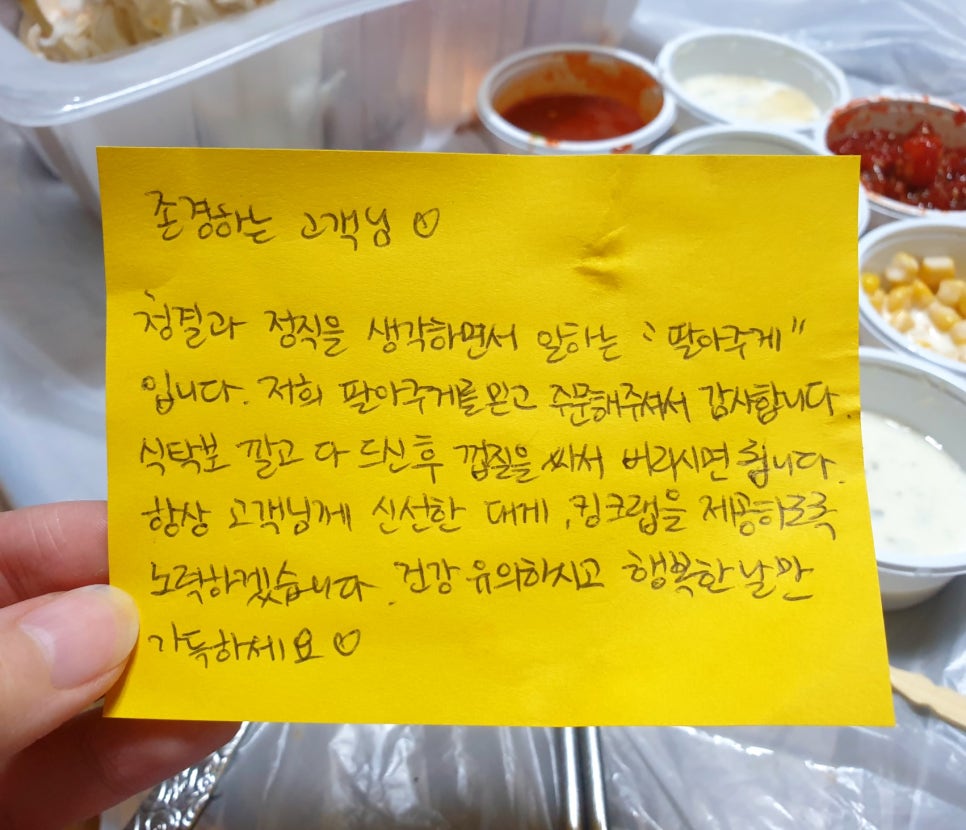 존경하는 고객님 ♡
청결과 정직을 생각하면서 일하는 "팔아주게"
입니다. 저희 팔아주게를 믿고 주문해주셔서 감사합니다.
식탁보 깔고 다 드신후 껍질을 싸서 버리시면 됩니다.
항상 고객님께 신선한 대게, 킹크랩을 제공하도록
노력하겠습니다. 건강 유의하시고 행복한 날만
가득하세요 ♡